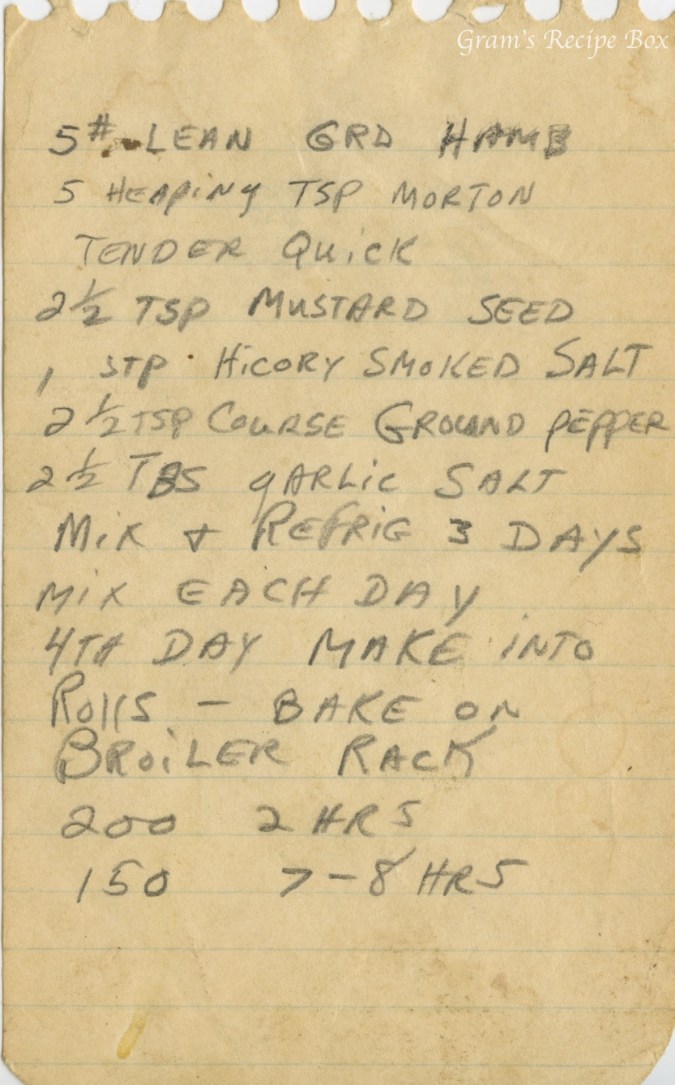 Gram's Recipe Box
5# LEAN GRD HAMB
5 HEAPING TSP MORTON
TENDER QUICK
2 1/2 TSP MUSTARD SEED
1 STP. HICORY SMOKED SALT
2 1/2 TSP COURSE GROUND PEPPER
2 1/2 TBS GARLIC SALT
MIX + REFRIG 3 DAYS
MIX EACH DAY
4TH DAY MAKE INTO
ROLLS - BAKE ON
BROILER RACK
200 2 HRS
150 7-8 HRS